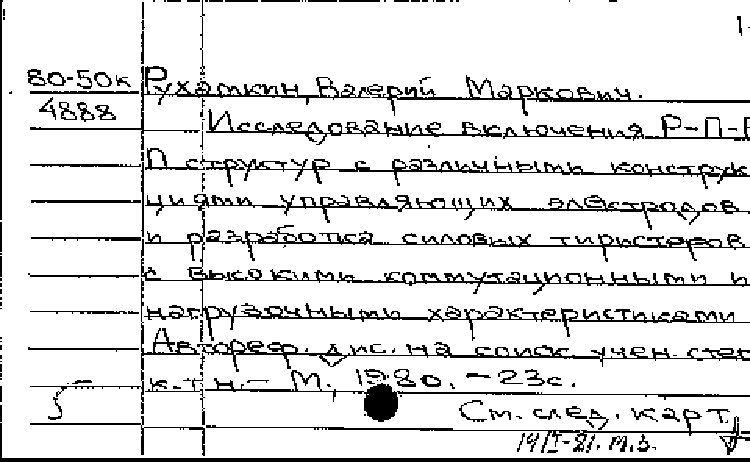 80-50к Рухамкин, Валерий Маркович.
4888
Исследование включения Р-П-Р
П структур с различными конструк
циями управляющих электродов
и разработка силовых тиристоров
с высокими коммутационными и
нагрузочными характеристиками
Автореф. дис. на соиск. учен. степ
к.т.н. - М., 1980. - 23с.
См. след. карт.
19/I-81. м.з.